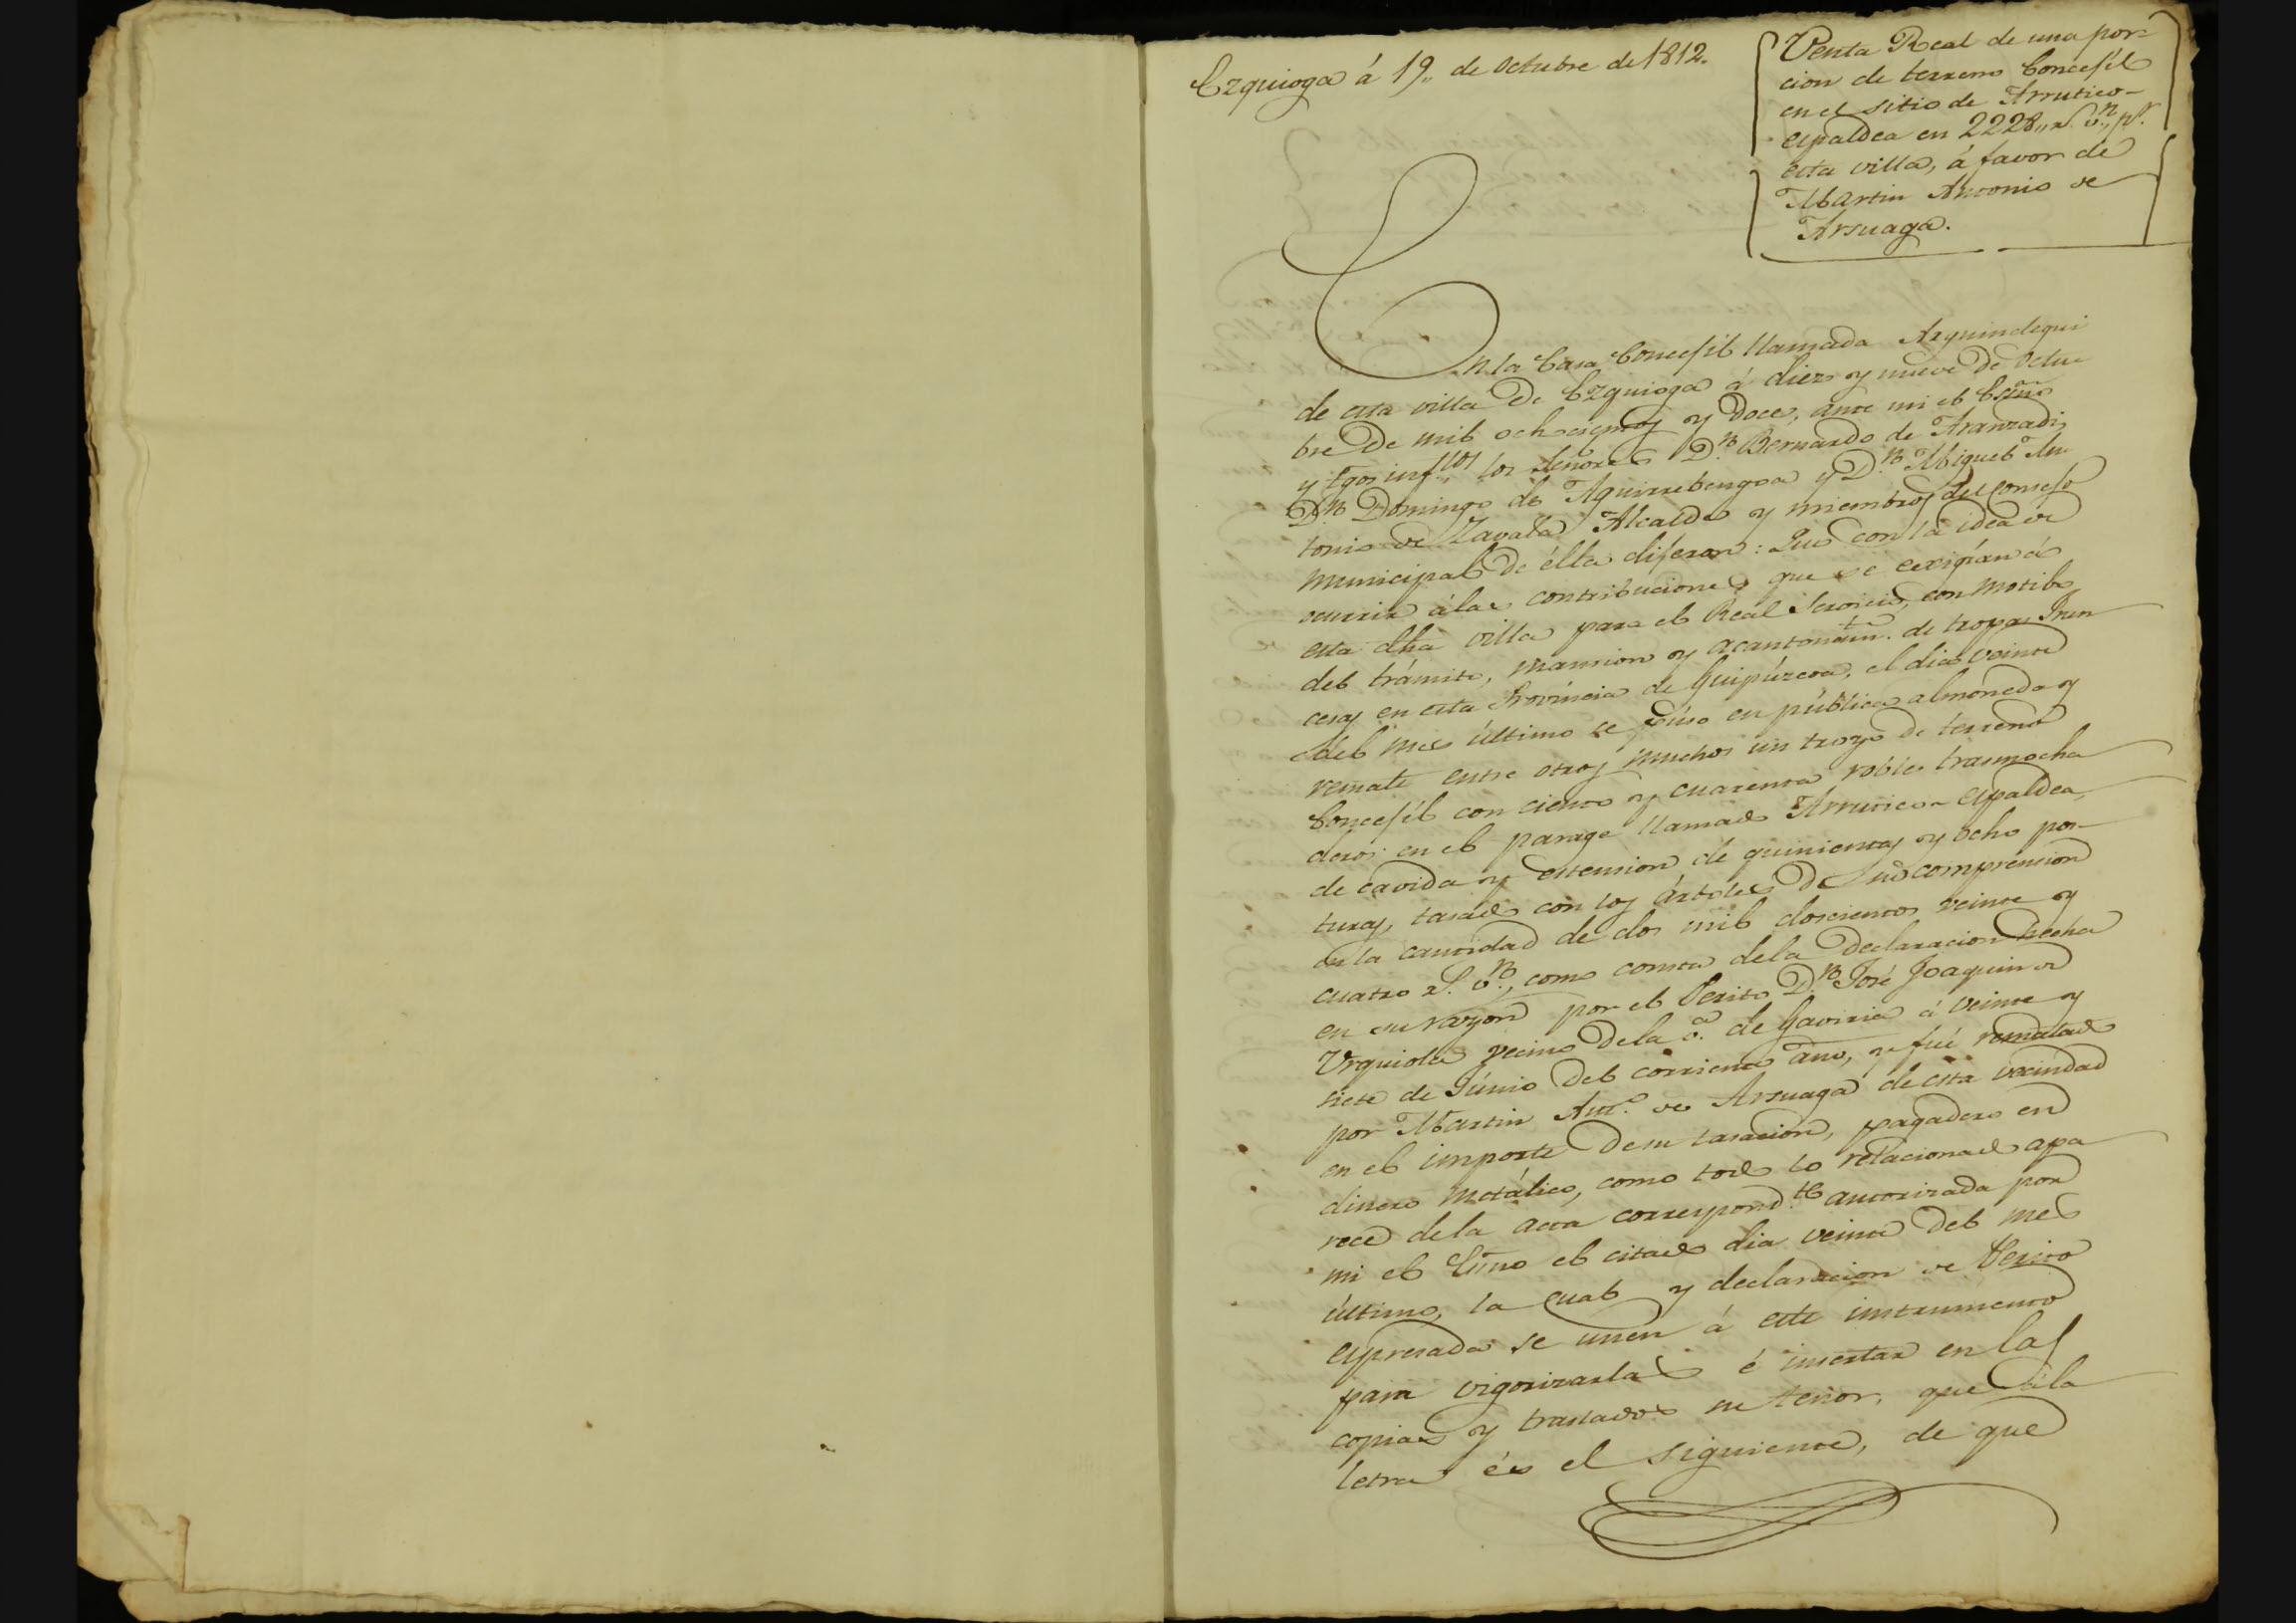 Ezquioga á 19,, de Octubre de 1812.
Venta Real de una por-
cion de terreno Concejíl
en el sitio de Arrutico-
espaldea en 2228,, rs. vn., pr.
esta villa, á favor de
Martin Antonio de
Arsuaga.
En la Casa Concejil llamada Arguindegui
de esta villa De Ezquioga á diez y nueve De Octu-
bre De mil ochocientos y Doce, ante mi el Esno
y tgos infltos los Señores Dn. Bernardo de Aranzadi,
Dn. Domingo de Aguirrebengoa y Dn. Miguel An-
tonio de Zavala Alcalde y miembros del consejo
municipal De élla dijeron: Que con la idea de
ocurrir á las contribuciones que se exigían á
esta dha villa para el Real Servicio, con motibo
del trámite, mansion y acantonamto. de tropas Fran
cesas en esta Província de Guipúzcoa, el dia veinte
del mes último se púso en pública almoneda y
remate entre otros muchos un trozo de terreno
Concejíl con ciento y cuarenta robles trasmocha
deros en el parage llamado Arrutico-espaldea,
de cavida y estension de quinientas y ocho pos-
turas, tasado con los árboles De su comprension
en la cantidad de dos mil doscientos veinte y
cuatro rs. vn., como consta dela Declaracion hecha
en su razon por el Perito Dn. José Joaquin de
Urquiola vecino Dela va. de Gaviria á veinte y
siete de Júnio Del corriente año, y fué rematado
por Martin Anto. de Arsuaga de esta vecindad
en el importe De su tasacion, pagadero en
dinero metálico, como todo lo relacionado apa
rece dela acta correspondte autorizada por
mi el Esno el citado dia veinte Del mes
último, la cual y declaracion de Perito
espresada se unen á este instrumento
para vigorizarla é insertar en las
copias y traslados su tenor, que á la
letra és el siguiente, de que